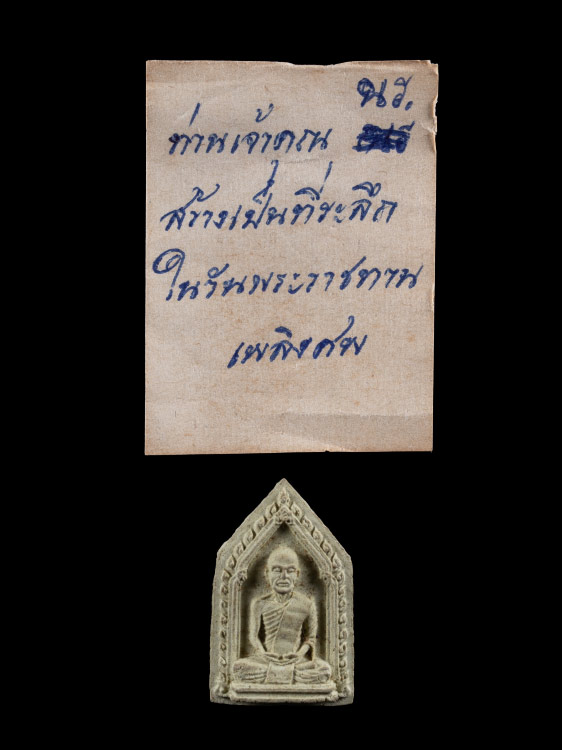 ท่านเจ้าคุณ นรี.
สร้างเป็นที่ระลึก
ในวันพระราชทาน
เพลิงศพ